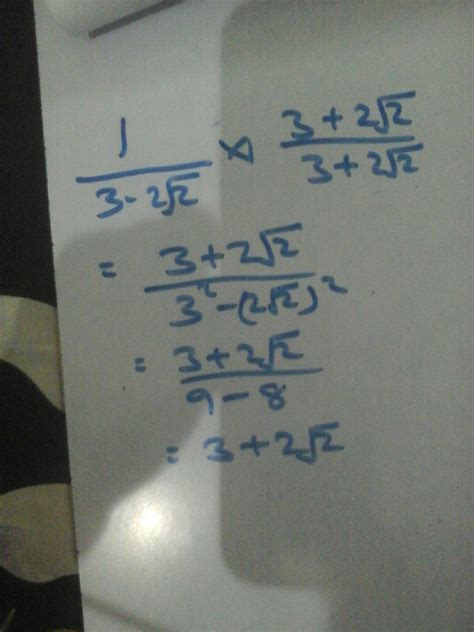 1/(3-2√2) × (3+2√2)/(3+2√2)
= (3+2√2)/(3²-(2√2)²)
= (3+2√2)/(9-8)
= 3+2√2